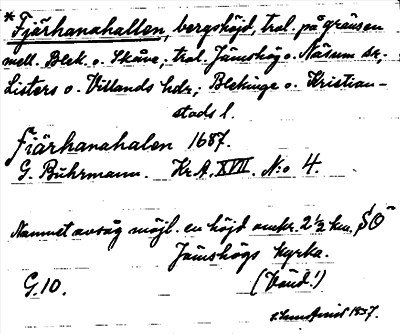 *Fjärhanahallen, bergshöjd, trol. på gränsen
mell. Blek. o. Skåne; trol. Jämshög o. Näsum sn,
Listers o. Villands hdr; Blekinge o. Kristian-
stads l.
Fiärhanahalen 1687.
G. Buhrmann. Kr.A. XVII. N:o 4.
Namnet avsåg möjl. en höjd omkr. 2 1/2 km. SÖ
Jämshögs kyrka.
G.10. (Vånd!)
1937.